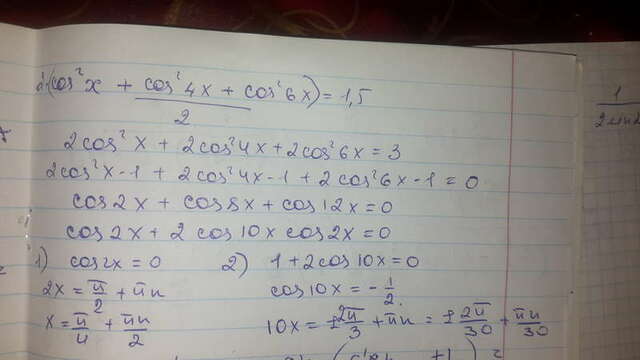 2(cos²x + cos²4x + cos²6x) = 1,5
2
2cos²x + 2cos²4x + 2cos²6x = 3
2cos²x-1 + 2cos²4x-1 + 2cos²6x-1 = 0
cos2x + cos8x + cos12x = 0
cos2x + 2 cos10x cos2x = 0
1) cos2x = 0 2) 1+2cos10x = 0
2x = π/2 + πn cos10x = -1/2.
x = π/4 + πn/2 10x = ±2π/3 + πn = ±2π/30 + πn/30